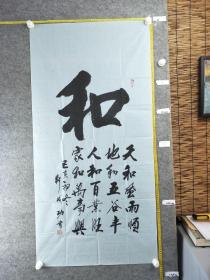 和
天和風雨順
地和五谷丰
人和百業旺
家和萬事興
己亥初冬